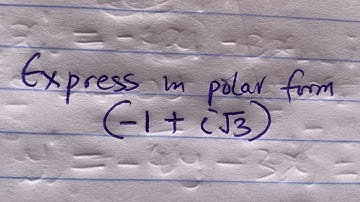 Express in polar form
(-1 + i√3)